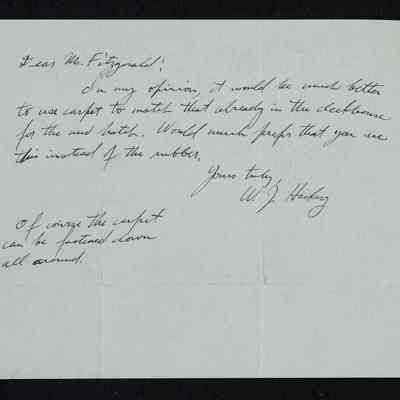 Dear Mr. Fitzgerald:
In my opinion, it would be much better
to use carpet to match that already in the deckhouse
for the mid hatch. Would much prefer that you use
this instead of the rubber.
Yours truly,
W. J.
Of course the carpet
can be fastened down
all around.